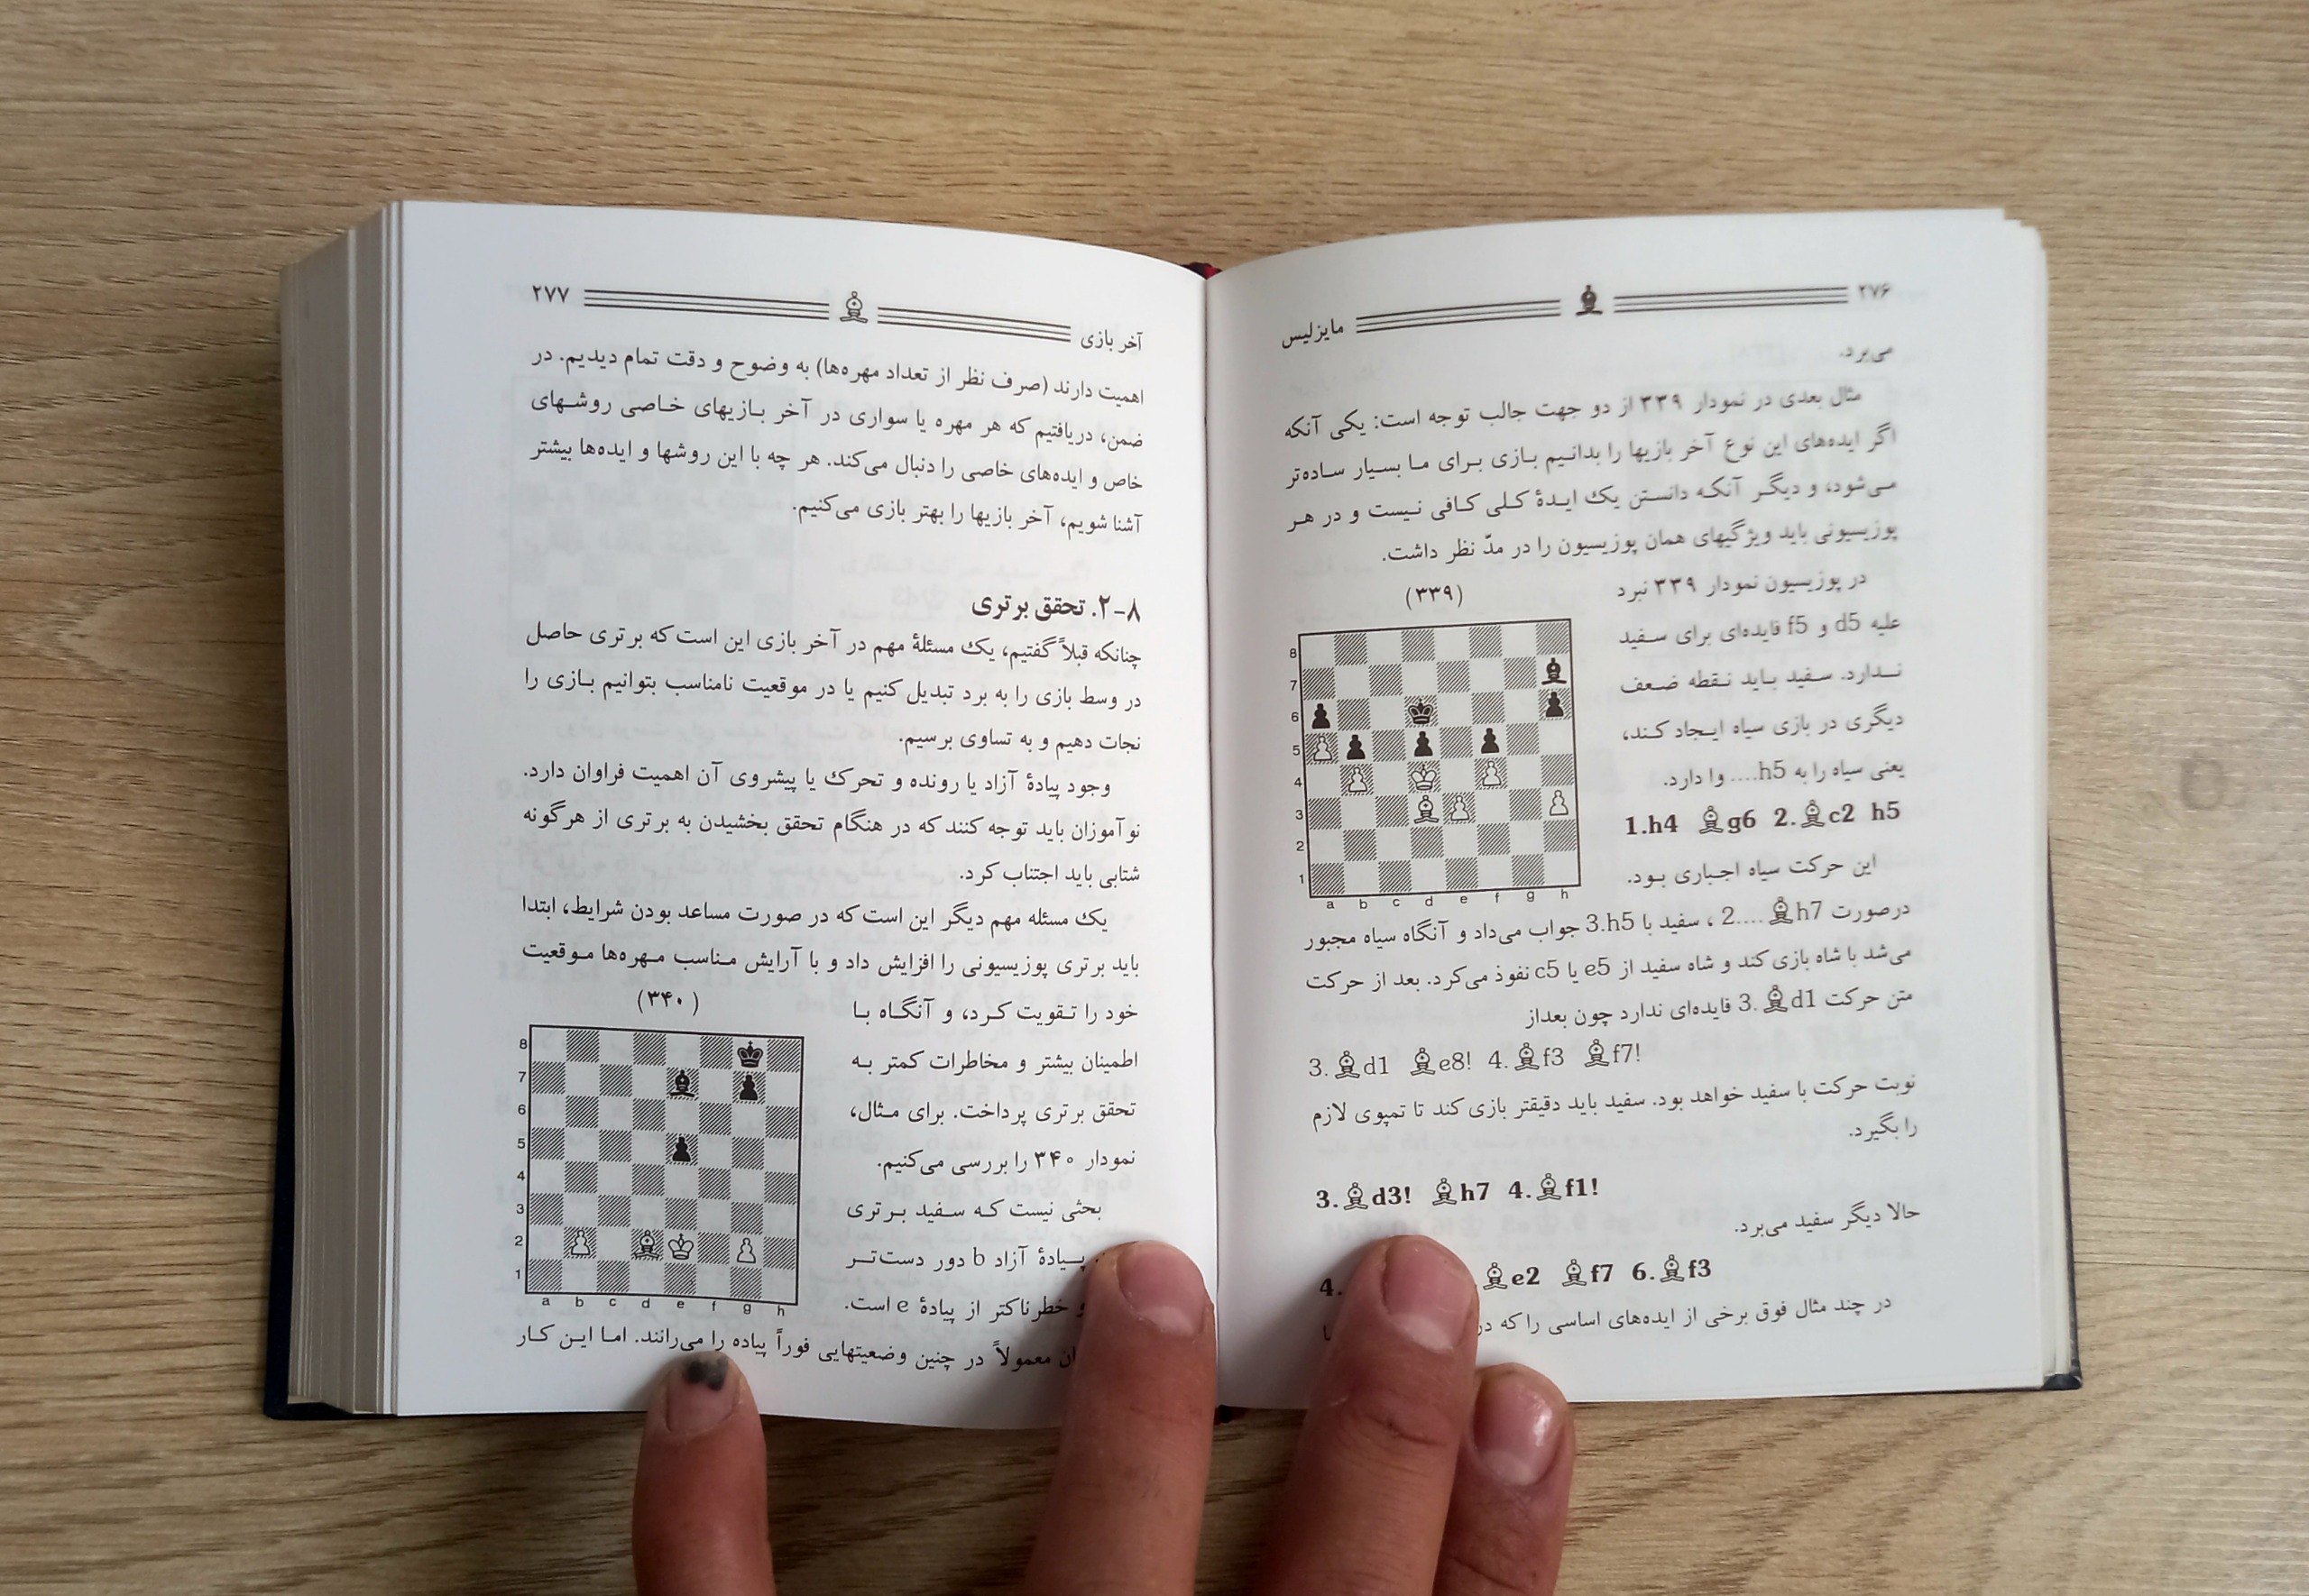 ۲۷۶
مایزلیس
می‌برد.
مثال بعدی در نمودار ۳۳۹ از دو جهت جالب توجه است: یکی آنکه
اگر ایده‌های این نوع آخر بازیها را بدانیم بازی برای ما بسیار ساده‌تر
می‌شود، و دیگر آنکه دانستن یک ایدهٔ کلی کافی نیست و در هر
پوزیسیونی باید ویژگیهای همان پوزیسیون را در مدّ نظر داشت.
(۳۳۹)
در پوزیسیون نمودار ۳۳۹ نبرد
علیه d5 و f5 فایده‌ای برای سفید
ندارد. سفید باید نقطه ضعف
دیگری در بازی سیاه ایجاد کند،
یعنی سیاه را به h5.... وا دارد.
8
7
6
5
4
3
2
1
a b c d e f g h
1.h4 ♗g6 2.♗c2 h5
این حرکت سیاه اجباری بود.
درصورت 2....♗h7 ، سفید با 3.h5 جواب می‌داد و آنگاه سیاه مجبور
می‌شد با شاه بازی کند و شاه سفید از e5 یا c5 نفوذ می‌کرد. بعد از حرکت
متن حرکت 3.♗d1 فایده‌ای ندارد چون بعداز
3.♗d1 ♗e8! 4.♗f3 ♗f7!
نوبت حرکت با سفید خواهد بود. سفید باید دقیقتر بازی کند تا تمپوی لازم
را بگیرد.
3.♗d3! ♗h7 4.♗f1!
حالا دیگر سفید می‌برد.
4. ♗e2 ♗f7 6.♗f3
در چند مثال فوق برخی از ایده‌های اساسی را که در
۲۷۷
آخر بازی
اهمیت دارند (صرف نظر از تعداد مهره‌ها) به وضوح و دقت تمام دیدیم. در
ضمن، دریافتیم که هر مهره یا سواری در آخر بازیهای خاصی روشهای
خاص و ایده‌های خاصی را دنبال می‌کند. هر چه با این روشها و ایده‌ها بیشتر
آشنا شویم، آخر بازیها را بهتر بازی می‌کنیم.
۸-۲. تحقق برتری
چنانکه قبلاً گفتیم، یک مسئلهٔ مهم در آخر بازی این است که برتری حاصل
در وسط بازی را به برد تبدیل کنیم یا در موقعیت نامناسب بتوانیم بازی را
نجات دهیم و به تساوی برسیم.
وجود پیادهٔ آزاد یا رونده و تحرک یا پیشروی آن اهمیت فراوان دارد.
نوآموزان باید توجه کنند که در هنگام تحقق بخشیدن به برتری از هرگونه
شتابی باید اجتناب کرد.
یک مسئله مهم دیگر این است که در صورت مساعد بودن شرایط، ابتدا
باید برتری پوزیسیونی را افزایش داد و با آرایش مناسب مهره‌ها موقعیت
خود را تقویت کرد، و آنگاه با
(۳۴۰)
اطمینان بیشتر و مخاطرات کمتر به
تحقق برتری پرداخت. برای مثال،
نمودار ۳۴۰ را بررسی می‌کنیم.
بحثی نیست که سفید برتری
پیادهٔ آزاد b دور دست‌تر
و خطرناکتر از پیادهٔ e است.
8
7
6
5
4
3
2
1
a b c d e f g h
معمولاً در چنین وضعیتهایی فوراً پیاده را می‌رانند. اما این کار